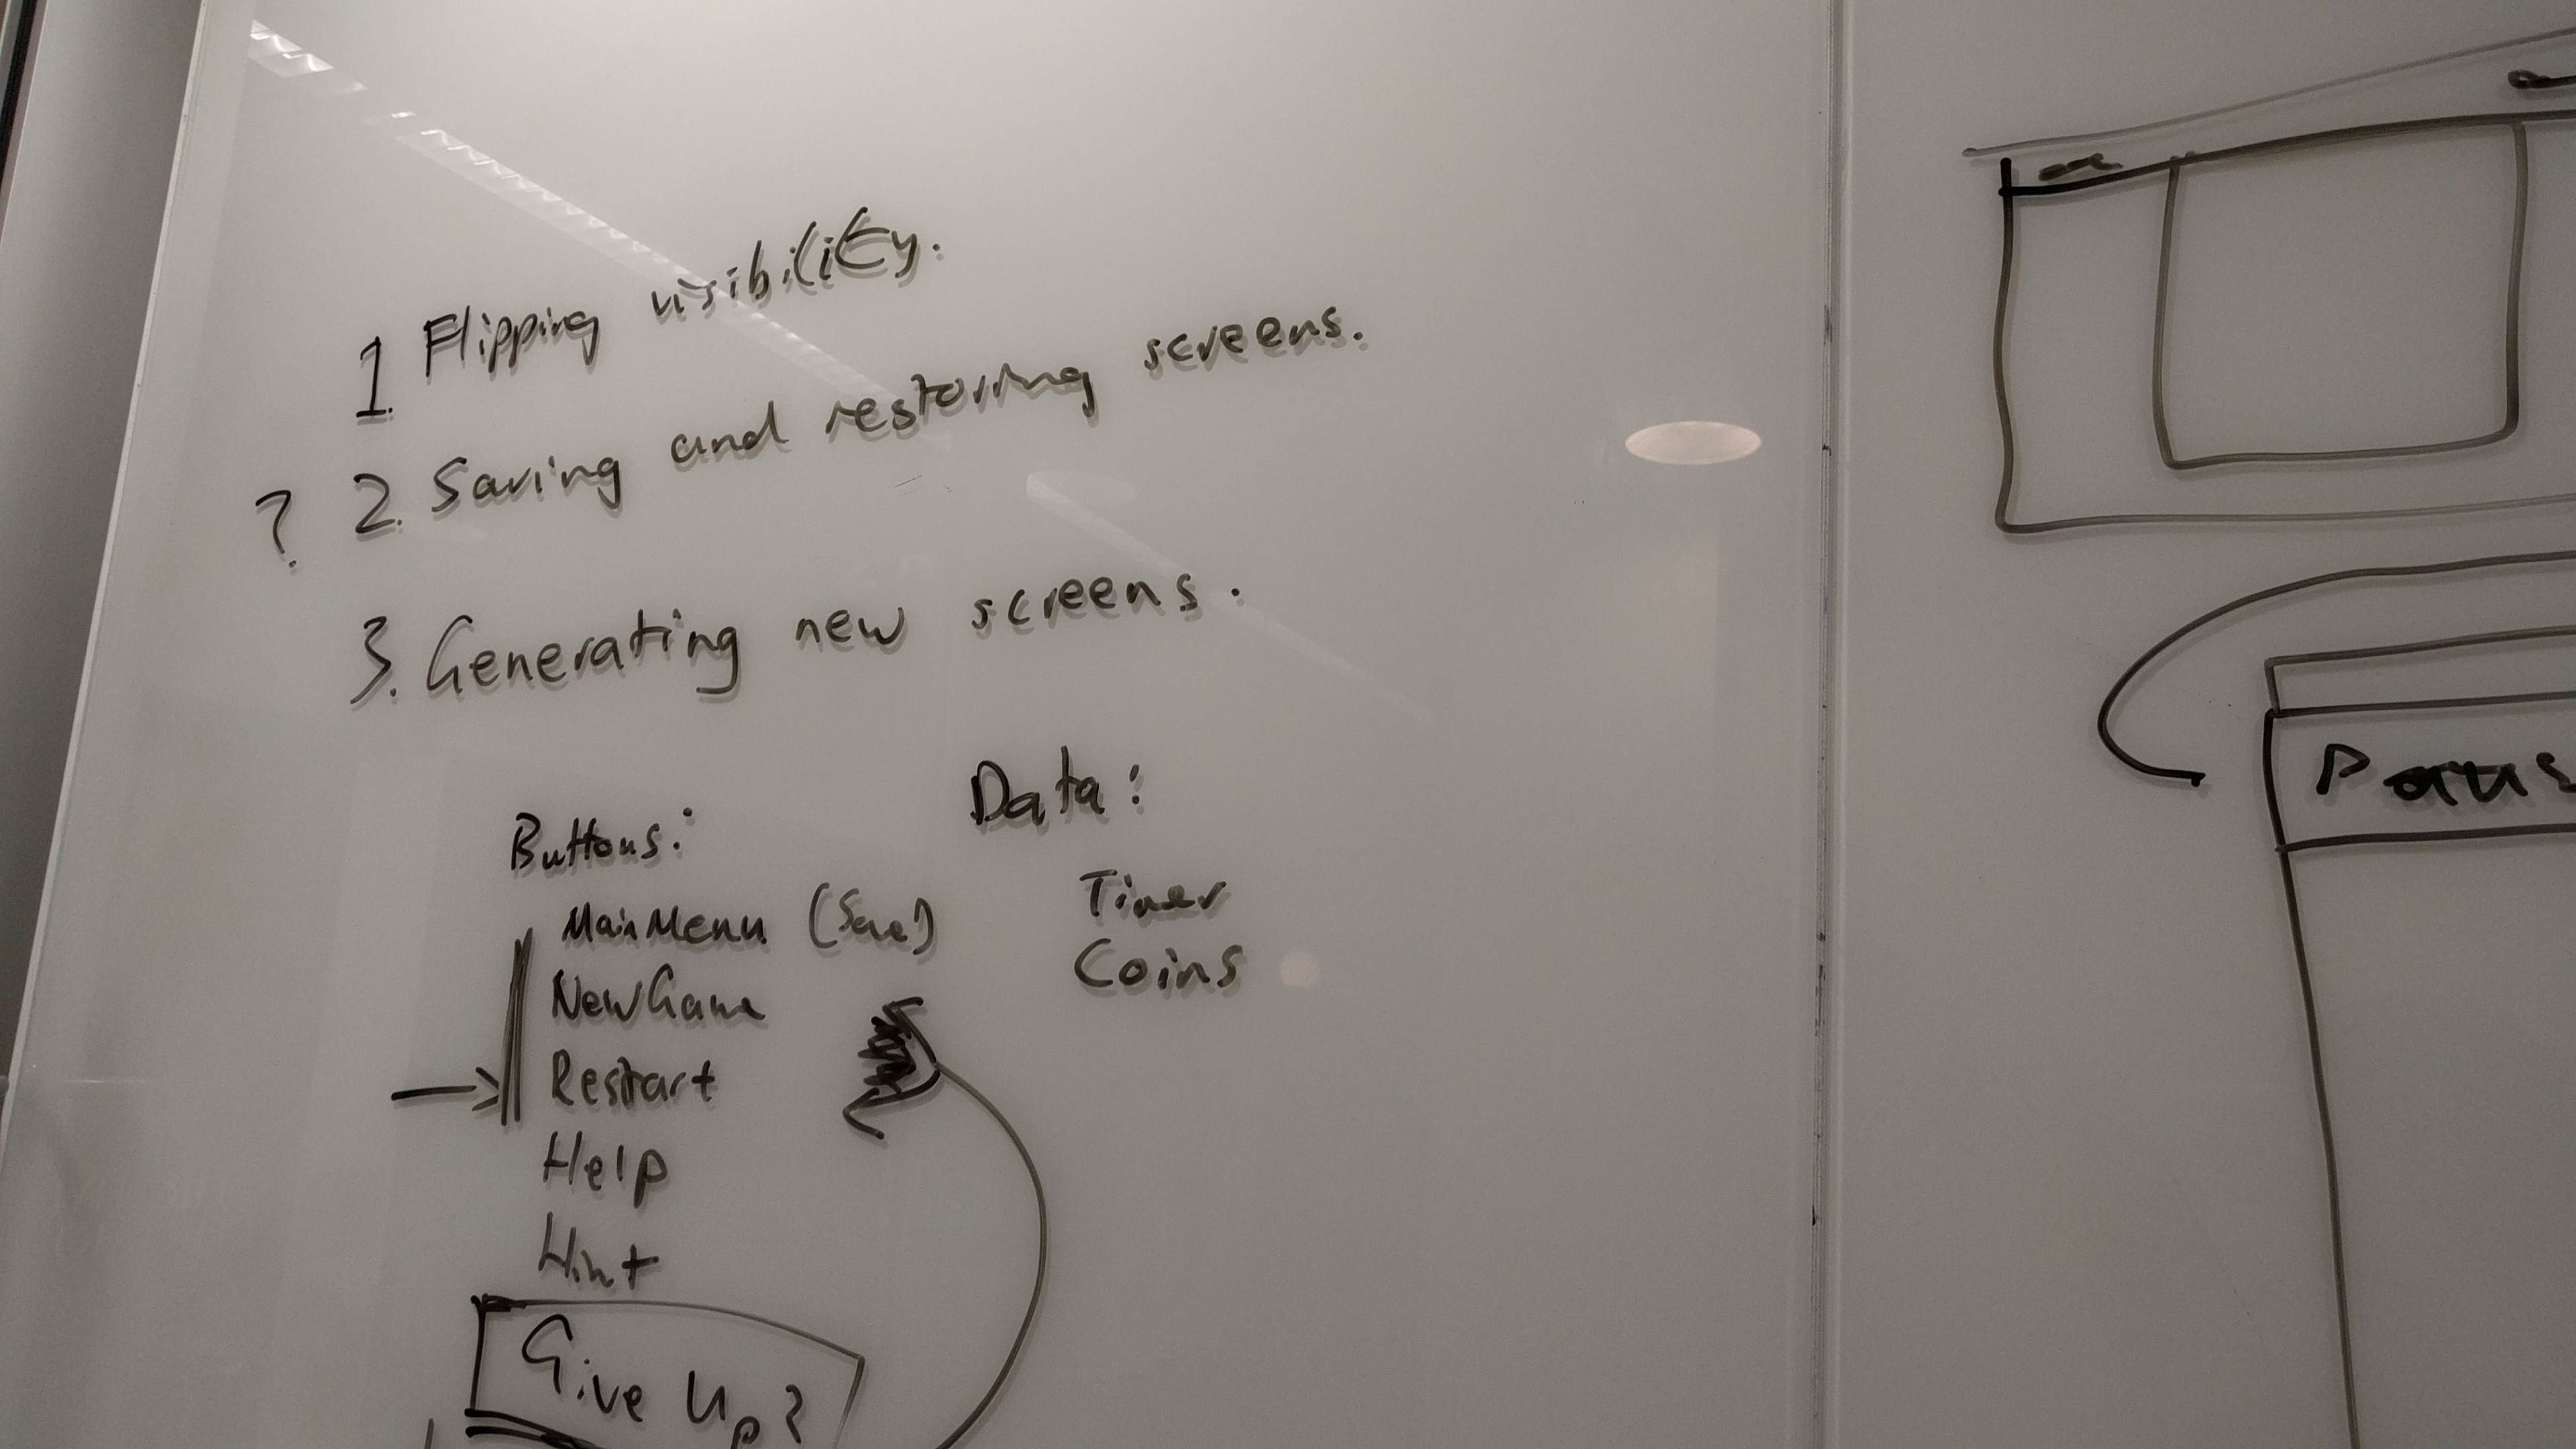 1. Flipping visibility.
? 2. Saving and restoring screens.
3. Generating new screens.
Buttons:
MainMenu (Save!)
NewGame
Restart
Help
Hint
Give Up?
Data:
Timer
Coins
Paus